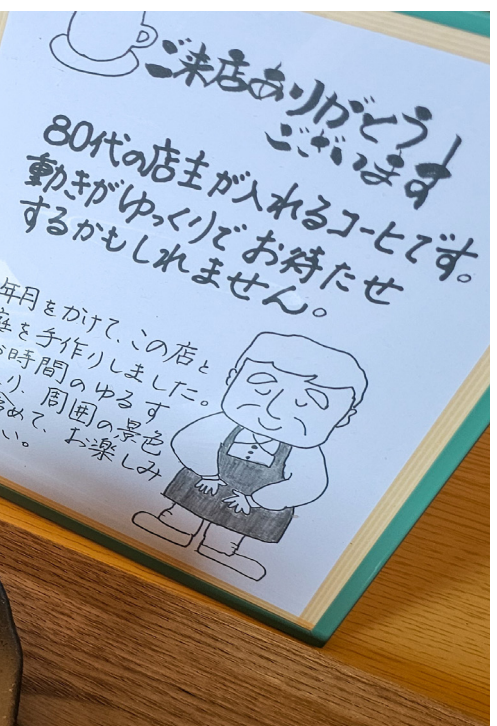 ご来店ありがとう
ございます!
80代の店主が入れるコーヒです。
動きがゆっくりでお待たせ
するかもしれません。
年月をかけて、この店と
庭を手作りしました。
時間のゆるす
り、周囲の景色
含めて、お楽しみ
い。